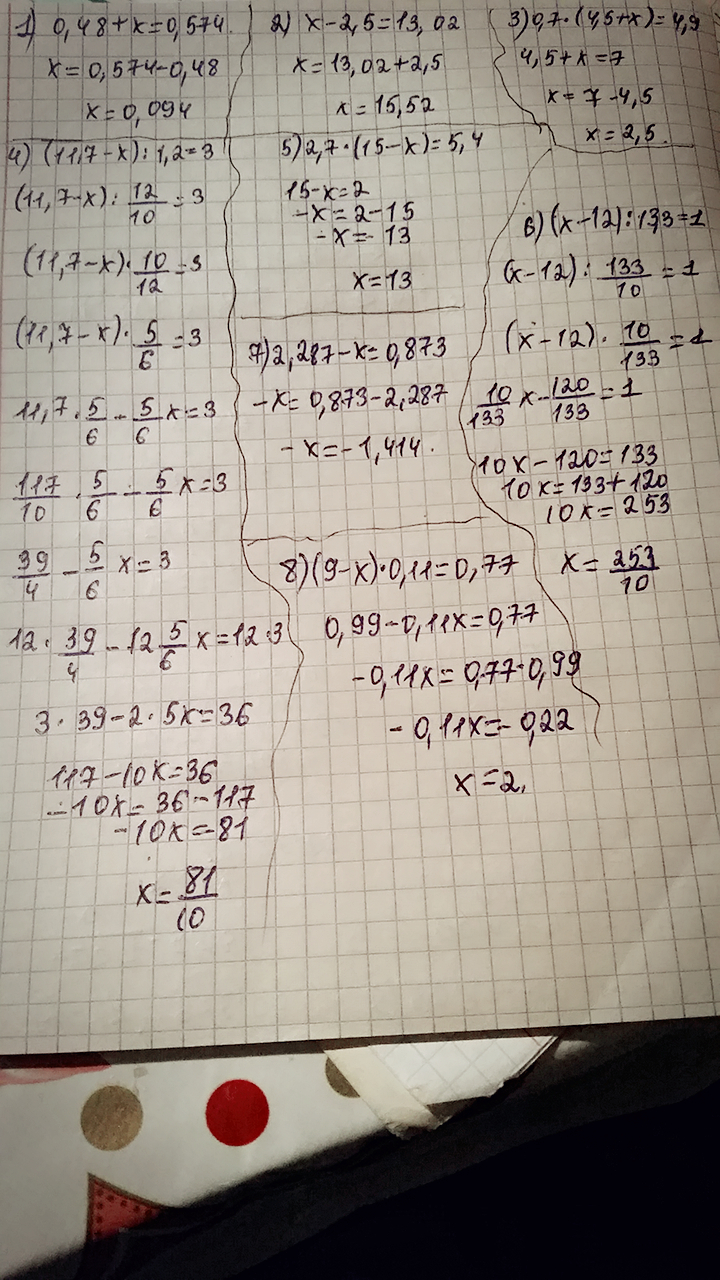 1) 0,48+x=0,574.
x=0,574-0,48
x=0,094
2) x-2,5=13,02
x=13,02+2,5
x=15,52
3) 0,7·(4,5+x)=4,9
4,5+x=7
x=7-4,5
x=2,5.
4) (11,7-x):1,2=3
(11,7-x):12/10=3
(11,7-x)·10/12=3
(11,7-x)·5/6=3
11,7·5/6-5/6x=3
117/10·5/6-5/6x=3
39/4-5/6x=3
12·39/4-12 5/6x=12·3
3·39-2·5x=36
117-10x=36
-10x=36-117
-10x=-81
x=81/10
5) 2,7·(15-x)=5,4
15-x=2
-x=2-15
-x=-13
x=13
6) (x-12):13,3=1
(x-12):133/10=1
(x-12)·10/133=1
10/133x-120/133=1
10x-120=133
10x=133+120
10x=253
x=253/10
7) 2,287-x=0,873
-x=0,873-2,287
-x=-1,414.
8) (9-x)·0,11=0,77
0,99-0,11x=0,77
-0,11x=0,77-0,99
-0,11x=-0,22
x=2,